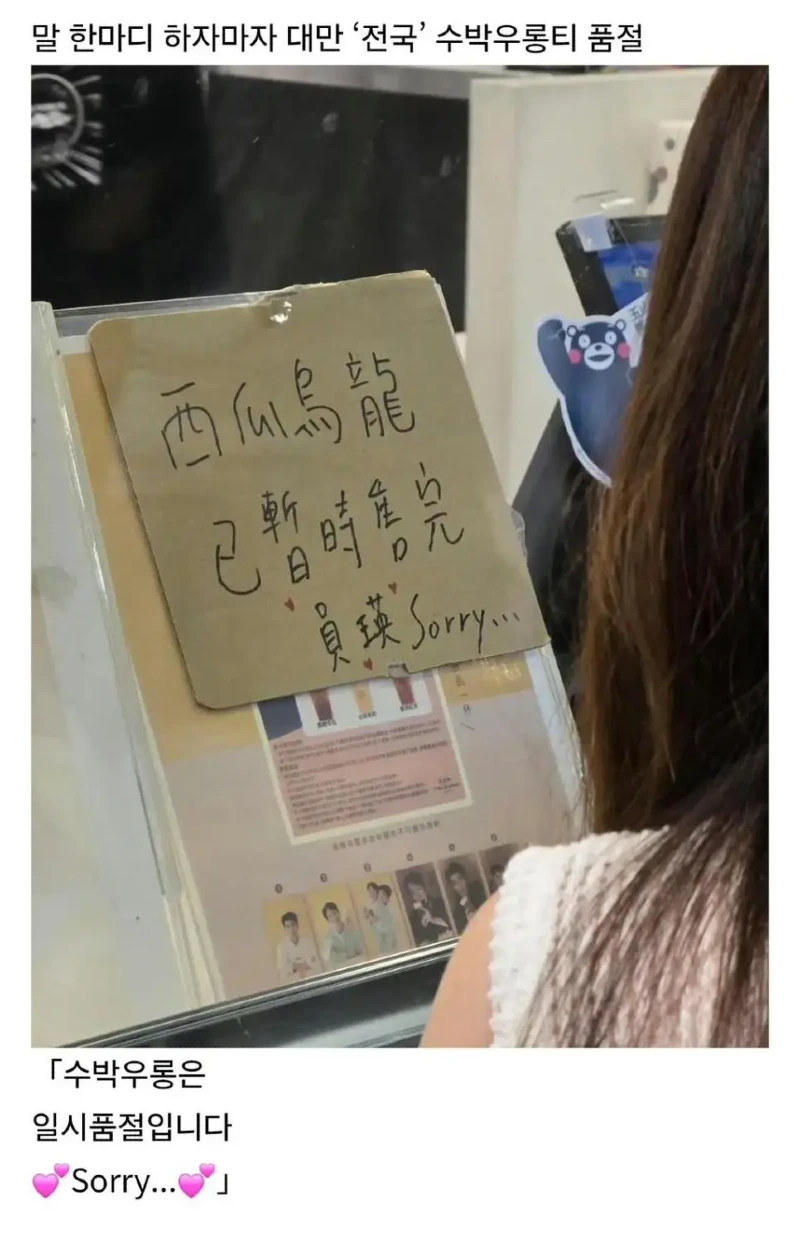 말 한마디 하자마자 대만 ‘전국’ 수박우롱티 품절
西瓜烏龍
已暫時售完
員瑛 Sorry...
「수박우롱은
일시품절입니다
💕Sorry...💕」